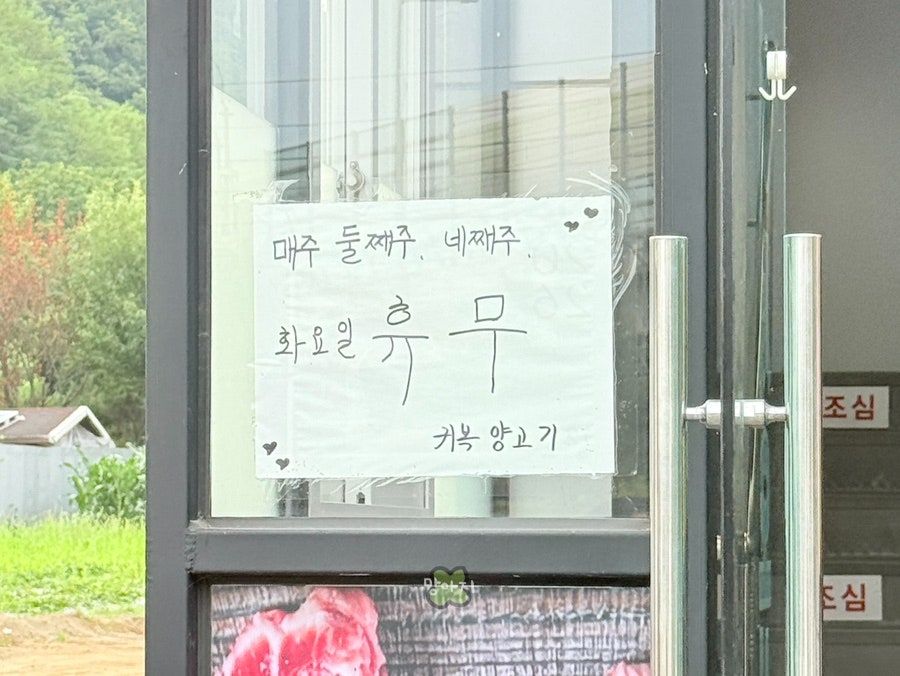 매주 둘째주. 네째주.
화요일 휴무
커복 양고기
조심
조심
망아지